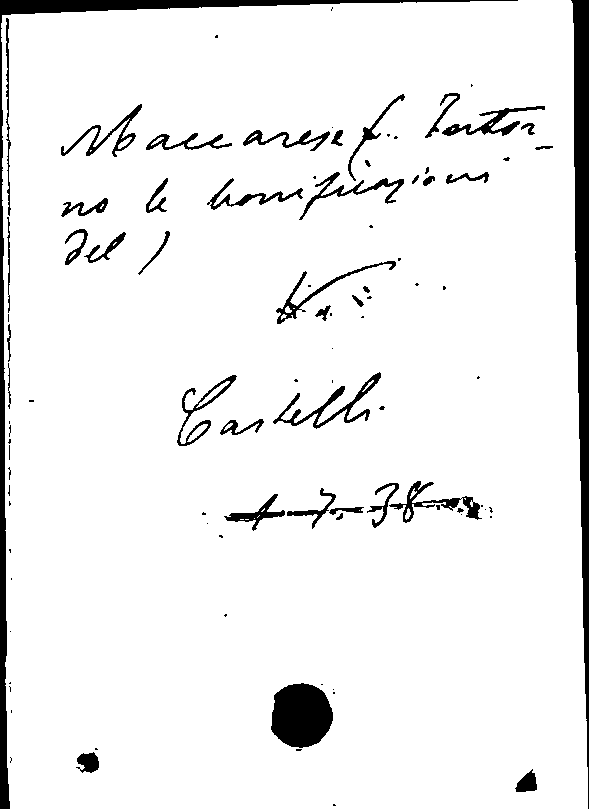 Maccarese (. Intor-
no le bonificazioni
del)
V.
Castelli
1-7-38